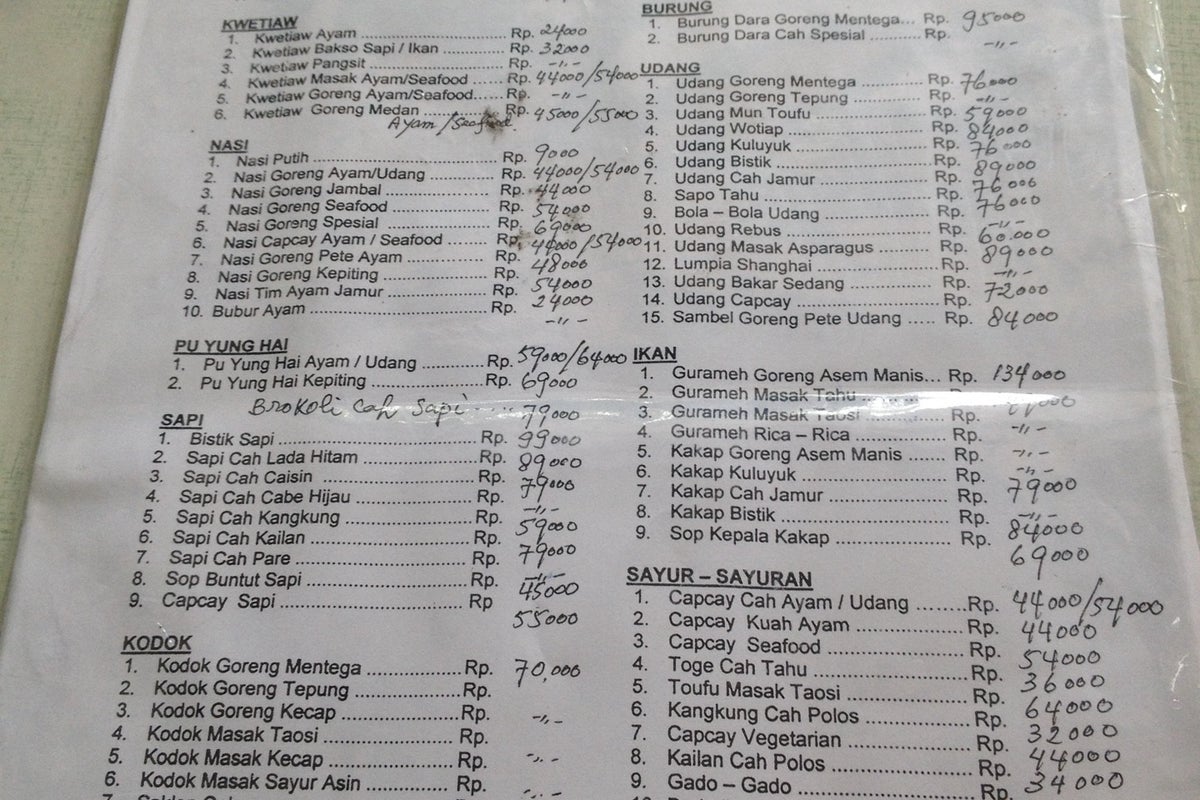 KWETIAW
1. Kwetiaw Ayam Rp. 24000
2. Kwetiaw Bakso Sapi / Ikan Rp. 32000
3. Kwetiaw Pangsit Rp. -"-
4. Kwetiaw Masak Ayam/Seafood Rp. 44000/54000
5. Kwetiaw Goreng Ayam/Seafood Rp. -"-
6. Kwetiaw Goreng Medan Rp. 45000/55000
Ayam/Seafood
NASI
1. Nasi Putih Rp. 9000
2. Nasi Goreng Ayam/Udang Rp. 44000/54000
3. Nasi Goreng Jambal Rp. 44000
4. Nasi Goreng Seafood Rp. 54000
5. Nasi Goreng Spesial Rp. 69000
6. Nasi Capcay Ayam / Seafood Rp. 44000/54000
7. Nasi Goreng Pete Ayam Rp. 48000
8. Nasi Goreng Kepiting Rp. 54000
9. Nasi Tim Ayam Jamur Rp. 24000
10. Bubur Ayam Rp. -"-
PU YUNG HAI
1. Pu Yung Hai Ayam / Udang Rp. 59000/64000
2. Pu Yung Hai Kepiting Rp. 69000
Brokoli cah Sapi 79000
SAPI
1. Bistik Sapi Rp. 99000
2. Sapi Cah Lada Hitam Rp. 89000
3. Sapi Cah Caisin Rp. 79000
4. Sapi Cah Cabe Hijau Rp. -"-
5. Sapi Cah Kangkung Rp. 59000
6. Sapi Cah Kailan Rp. 79000
7. Sapi Cah Pare Rp. -"-
8. Sop Buntut Sapi Rp. 45000
9. Capcay Sapi Rp 55000
KODOK
1. Kodok Goreng Mentega Rp. 70,000
2. Kodok Goreng Tepung Rp.
3. Kodok Goreng Kecap Rp. -"-
4. Kodok Masak Taosi Rp.
5. Kodok Masak Kecap Rp. -"-
6. Kodok Masak Sayur Asin Rp. -"-
BURUNG
1. Burung Dara Goreng Mentega... Rp. 95000
2. Burung Dara Cah Spesial Rp. -"-
UDANG
1. Udang Goreng Mentega Rp. 76000
2. Udang Goreng Tepung Rp. -"-
3. Udang Mun Toufu Rp. 59000
4. Udang Wotiap Rp. 84000
5. Udang Kuluyuk Rp. 76000
6. Udang Bistik Rp. 89000
7. Udang Cah Jamur Rp. 76000
8. Sapo Tahu Rp. 76000
9. Bola – Bola Udang Rp. -"-
10. Udang Rebus Rp. 60.000
11. Udang Masak Asparagus Rp. 89000
12. Lumpia Shanghai Rp. -"-
13. Udang Bakar Sedang Rp. 72000
14. Udang Capcay Rp.
15. Sambel Goreng Pete Udang ..... Rp. 84000
IKAN
1. Gurameh Goreng Asem Manis... Rp. 134000
2. Gurameh Masak Tahu Rp.
3. Gurameh Masak Taosi Rp. -"-
4. Gurameh Rica – Rica Rp.
5. Kakap Goreng Asem Manis Rp. -"-
6. Kakap Kuluyuk Rp. -"-
7. Kakap Cah Jamur Rp. 79000
8. Kakap Bistik Rp. -"- 84000
9. Sop Kepala Kakap Rp. 69000
SAYUR – SAYURAN
1. Capcay Cah Ayam / Udang Rp. 44000/54000
2. Capcay Kuah Ayam Rp. 44000
3. Capcay Seafood Rp. 54000
4. Toge Cah Tahu Rp. 36000
5. Toufu Masak Taosi Rp. 64000
6. Kangkung Cah Polos Rp. 32000
7. Capcay Vegetarian Rp. 44000
8. Kailan Cah Polos Rp. 34000
9. Gado – Gado Rp.